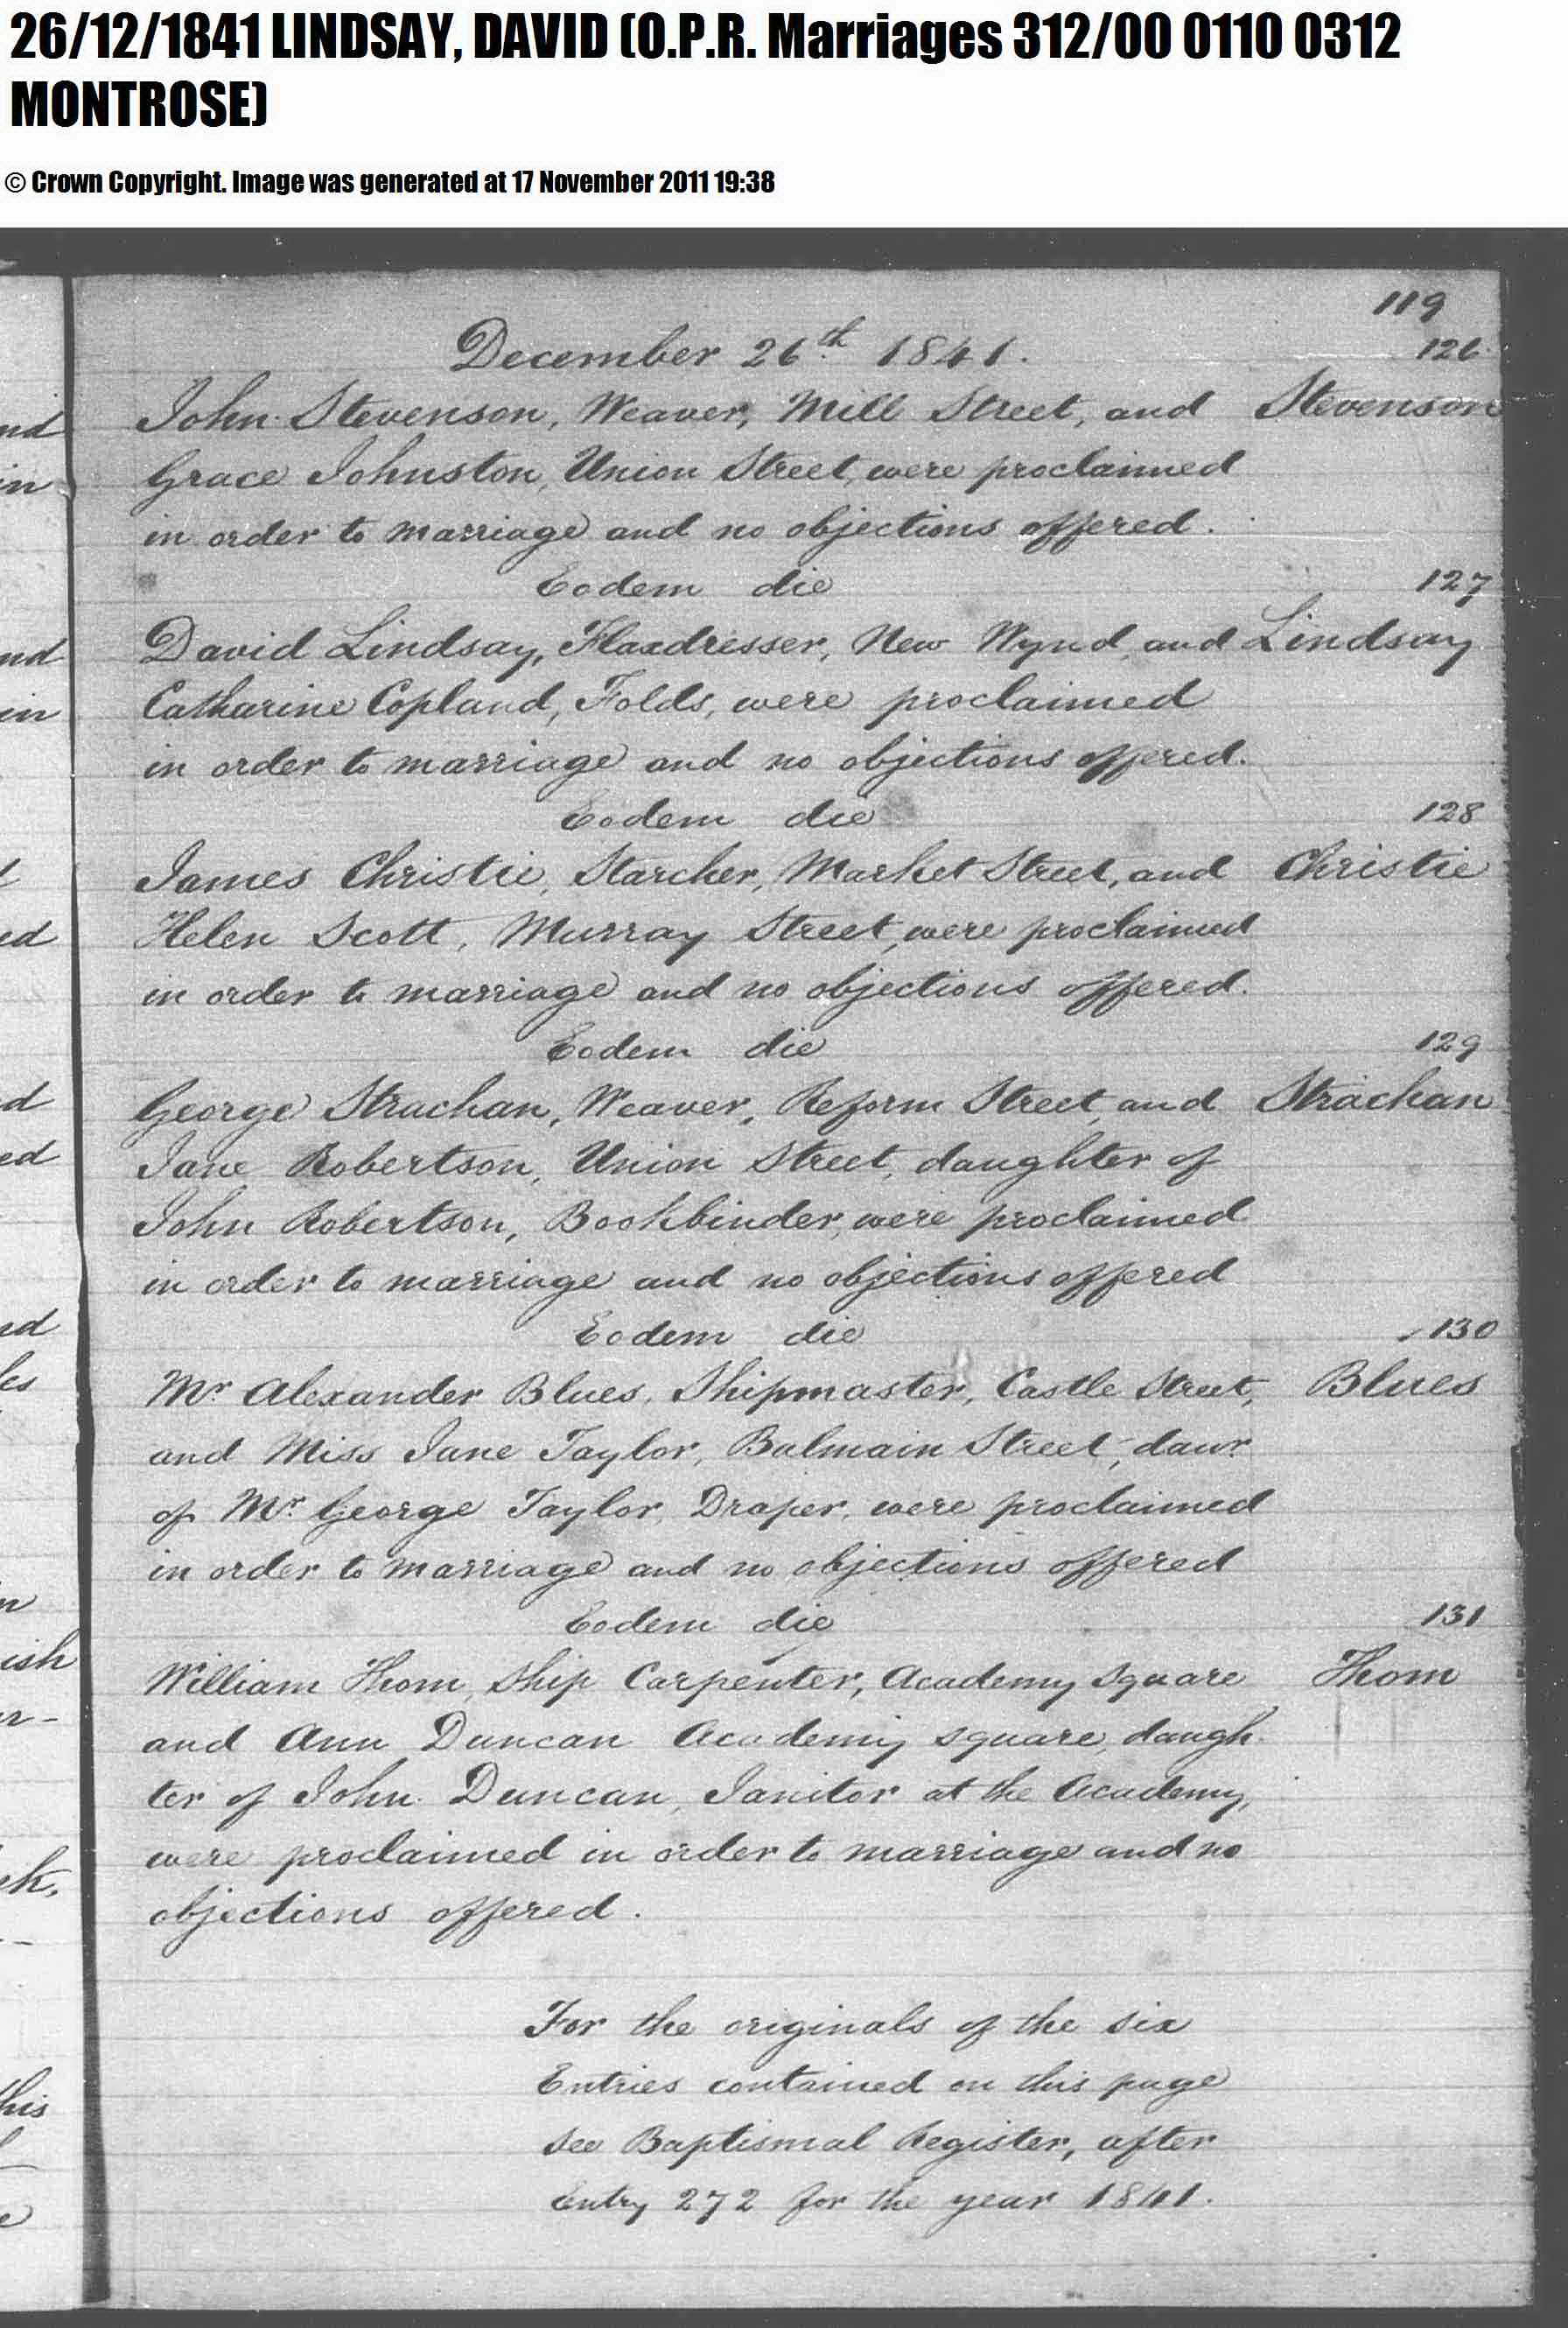 26/12/1841 LINDSAY, DAVID (O.P.R. Marriages 312/00 0110 0312
MONTROSE)
© Crown Copyright. Image was generated at 17 November 2011 19:38
119
December 26th 1841.
126
John Stevenson, Weaver, Mill Street, and Stevenson
Grace Johnston, Union Street, were proclaimed
in order to marriage and no objections offered.
Eodem die 127
David Lindsay, Flaxdresser, New Wynd, and Lindsay
Catharine Copland, Folds, were proclaimed
in order to marriage and no objections offered.
Eodem die 128
James Christie, Starcher, Market Street, and Christie
Helen Scott, Murray Street, were proclaimed
in order to marriage and no objections offered.
Eodem die 129
George Strachan, Weaver, Reform Street, and Strachan
Jane Robertson, Union Street, daughter of
John Robertson, Bookbinder, were proclaimed
in order to marriage and no objections offered
Eodem die 130
Mr. Alexander Blues, Shipmaster, Castle Street, Blues
and Miss Jane Taylor, Balmain Street, daur.
of Mr. George Taylor, Draper, were proclaimed
in order to marriage and no objections offered
Eodem die 131
William Thom, Ship Carpenter, Academy Square Thom
and Ann Duncan Academy Square, daugh-
ter of John Duncan, Janitor at the Academy,
were proclaimed in order to marriage and no
objections offered.
For the originals of the six
Entries contained on this page
see Baptismal Register, after
Entry 272 for the year 1841.